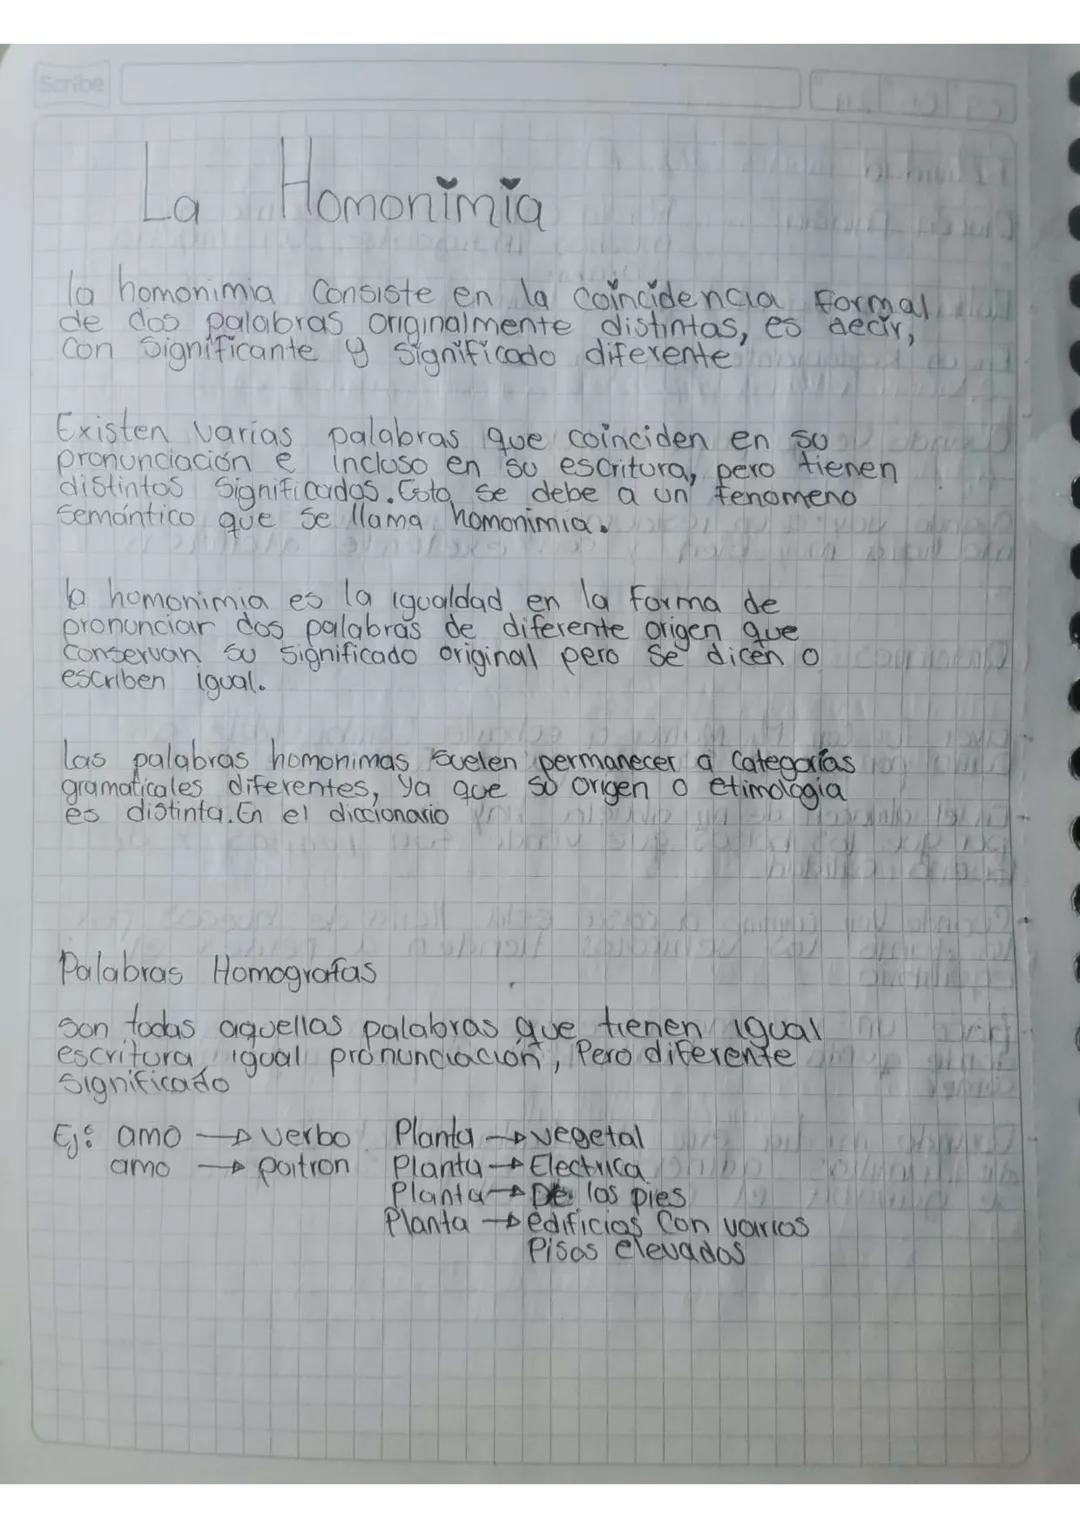 Scribe
La Homonimia
la homonimia consiste en la coincidencia formal
de dos palabras originalmente distintas, es decir,
con significante y significado diferente
Existen varias palabras que coinciden en su
pronunciación e incluso en su escritura, pero tienen
distintos significados. Esto se debe a un fenomeno
semántico que se llama homonimia.
la homonimia es la igualdad en la forma de
pronunciar dos palabras de diferente origen que
conservan su significado original pero se dicen o
escriben igual.
las palabras homonimas suelen permanecer a categorías
gramaticales diferentes, ya que su origen o etimología
es distinta. En el diccionario
Palabras Homografas
son todas aquellas palabras que tienen igual
escritura, igual pronunciación, Pero diferente
significado
Ej: amo → verbo Planta → vegetal
amo → patron Planta → Electrica
Planta → De los pies
Planta → edificios con varios
Pisos elevados